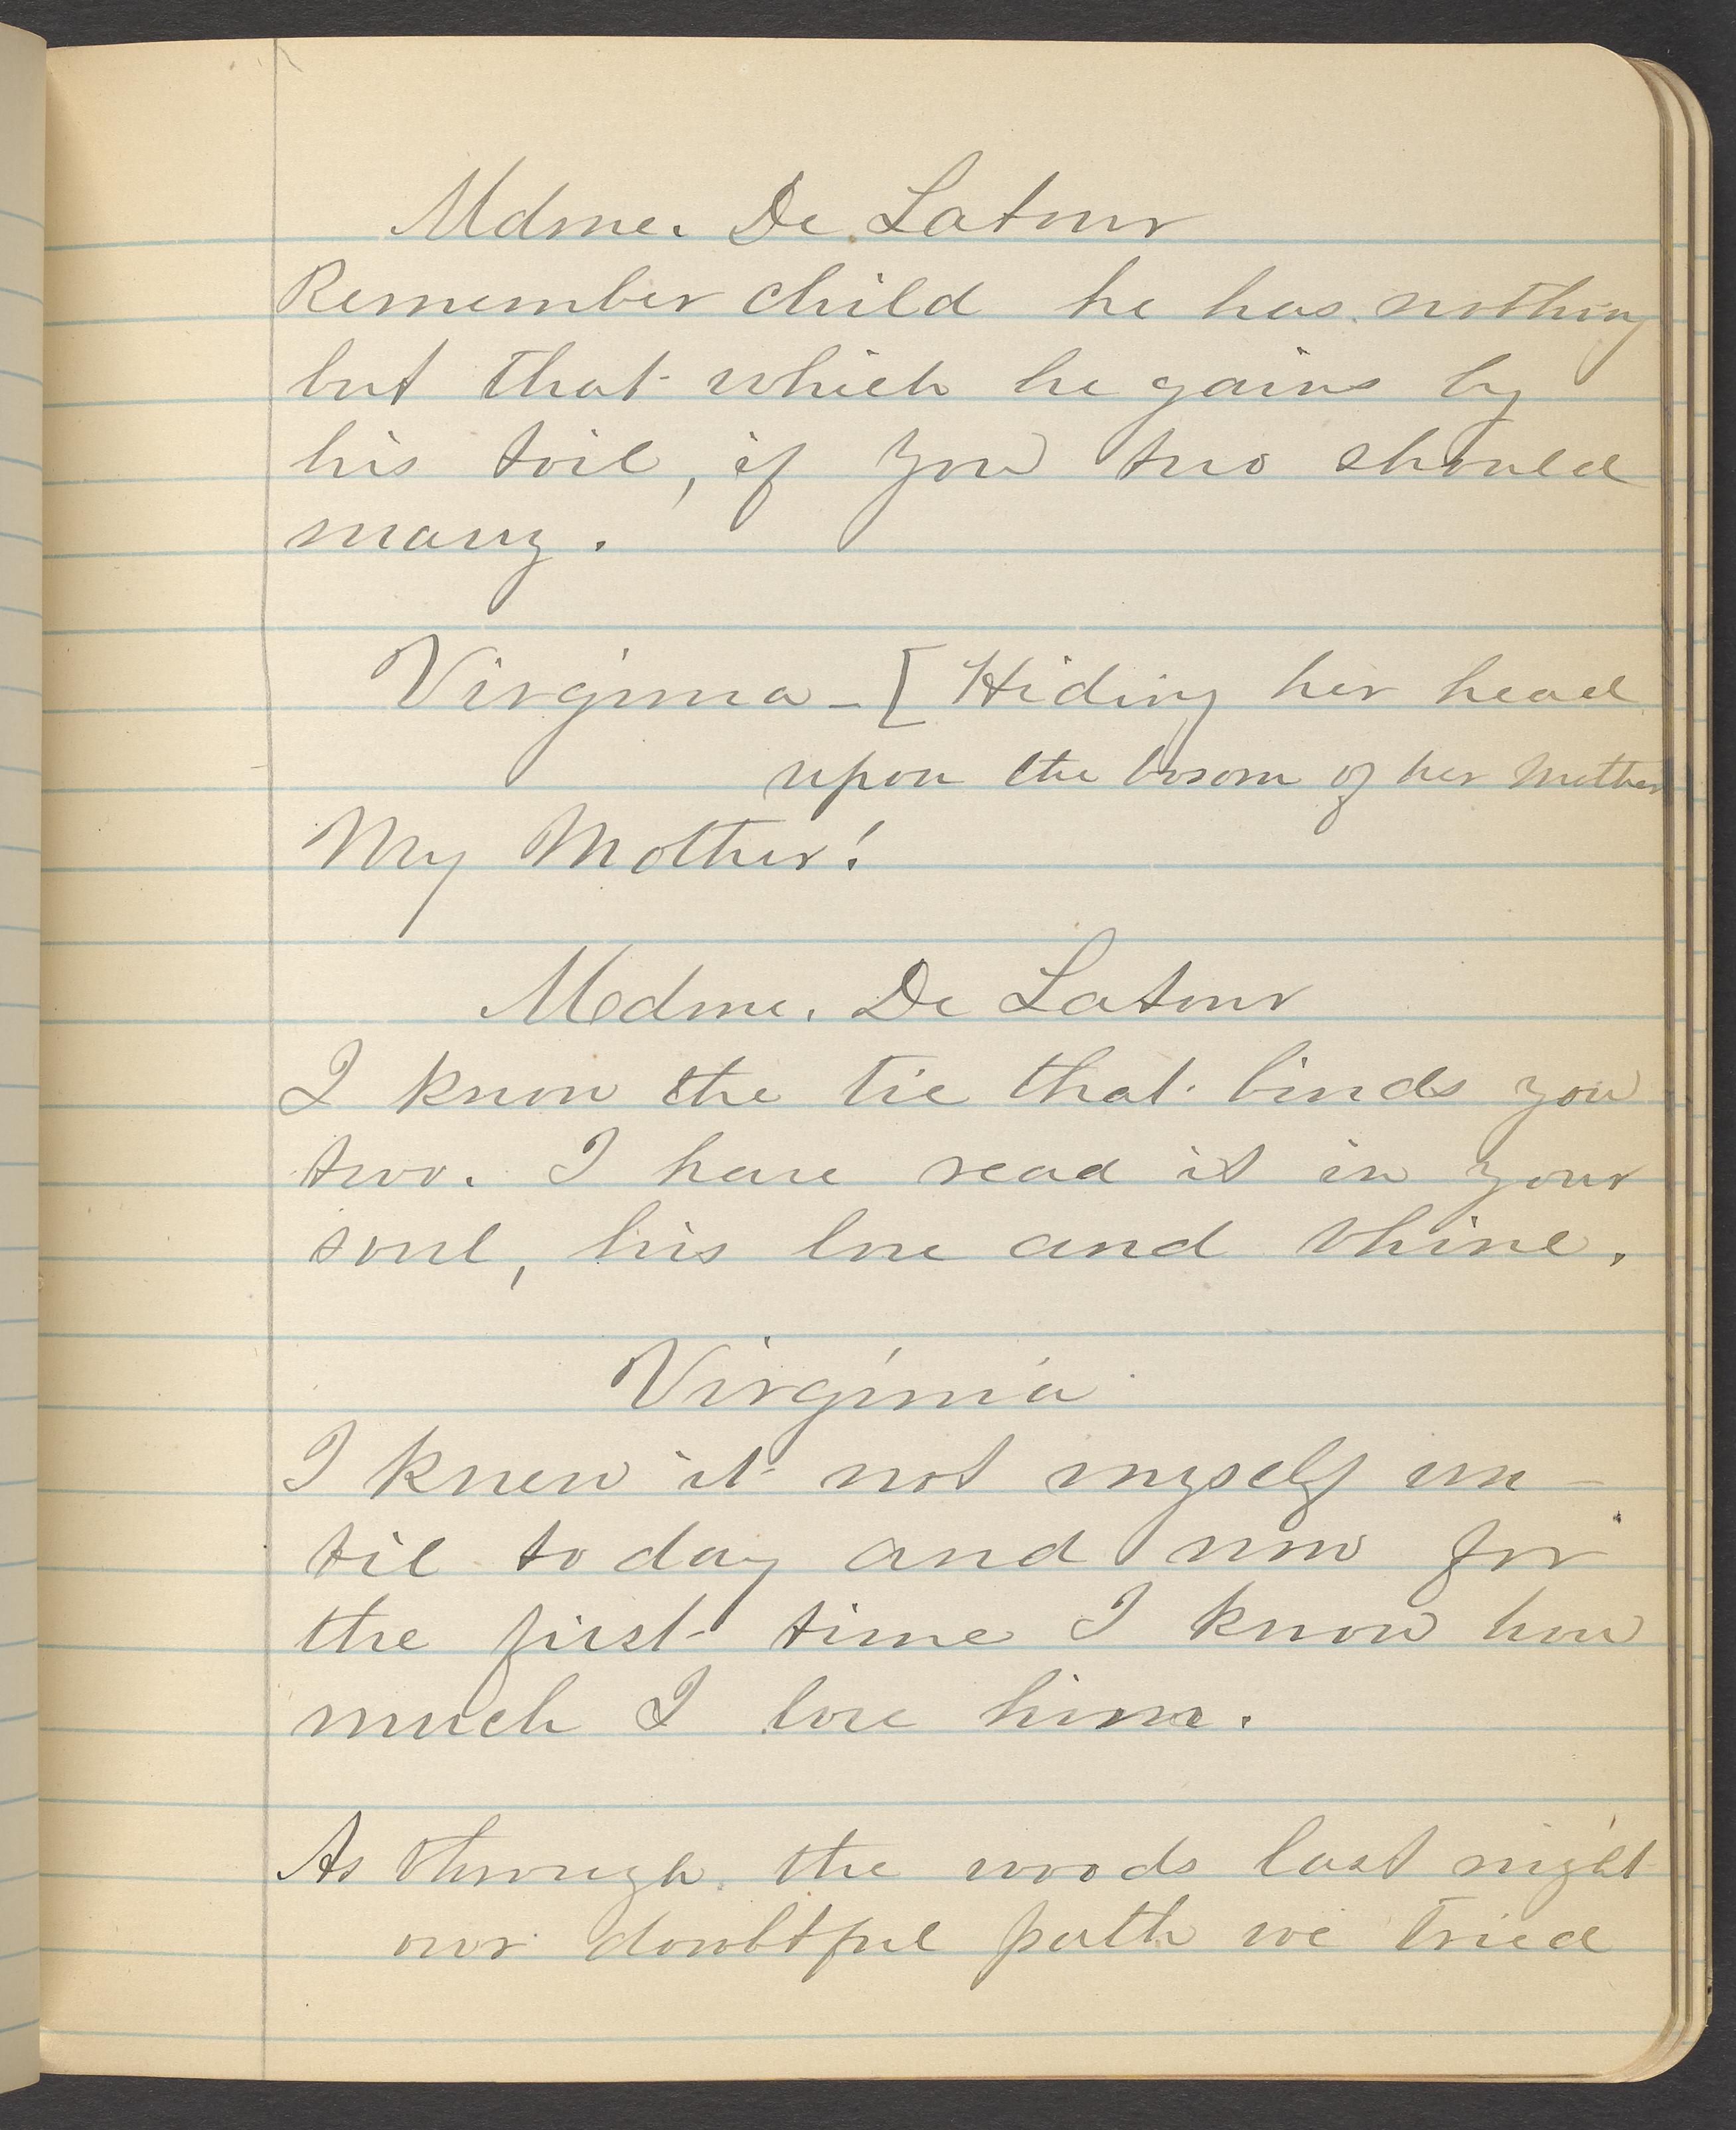 Mdme. De Latour
Remember child he has nothing
but that which he gains by
his toil, if you two should
marry.
Virginia - [ Hiding her head
upon the bosom of her Mother
My Mother!
Mdme. De Latour
I know the tie that binds you
two. I have read it in your
soul, his love and thine.
Virginia
I knew it not myself un-
til to day and now for
the first time I know how
much I love him.
As through the woods last night
our doubtful path we tried